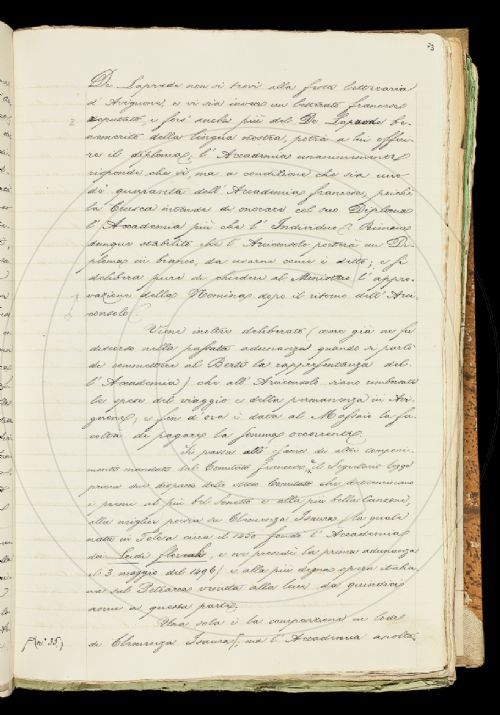 73
De Laprade non si trovi alla festa letteraria
d'Avignone, e vi sia invece un letterato francese
reputato e fors'anche più del De Laprade be-
nemerito della lingua nostra, potrà a lui offeri-
re il diploma; l'Accademia unanimemente
risponde che sì, ma a condizione che sia uno
dei quaranta dell'Accademia francese, perché
la Crusca intende di onorare col suo Diploma
l'Accademia più che l'Individuo. Rimane
dunque stabilito che l'Arciconsolo porterà un Di-
ploma in bianco, da usarne come è detto; e si
delibera pure di chiedere al Ministro l'appro-
vazione della Nomina dopo il ritorno dell'Arci-
consolo.
Viene inoltre deliberato (come già ne fu
discorso nella passata adunanza quando si parlò
di commettere al Berti la rappresentanza del-
l'Accademia) che all'Arciconsolo siano rimborsate
le spese del viaggio e della permanenza in Avi-
gnone; e fin d'ora è data al Massaio la fa-
coltà di pagare la somma occorrente.
Si passa all'esame di altri componi-
menti mandati dal Comitato francese; il Segretario legge
prima due dispacci dello stesso Comitato che
i premi al più bel Sonetto e alla più bella Canzone,
alla miglior poesia su Clemenza Isaura (la quale
nata in Tolosa circa il 1450 fondò l'Accademia
dei Ludi floreali, e ne presiedè la prima adunanza
il 3 maggio del 1496) e alla più degna opera italia-
na sul Petrarca venuta alla luce da quindici
anni a questa parte.
Una sola è la composizione in lode
di Clemenza Isaura, ma l'Accademia ascolta
(N.° 35.)